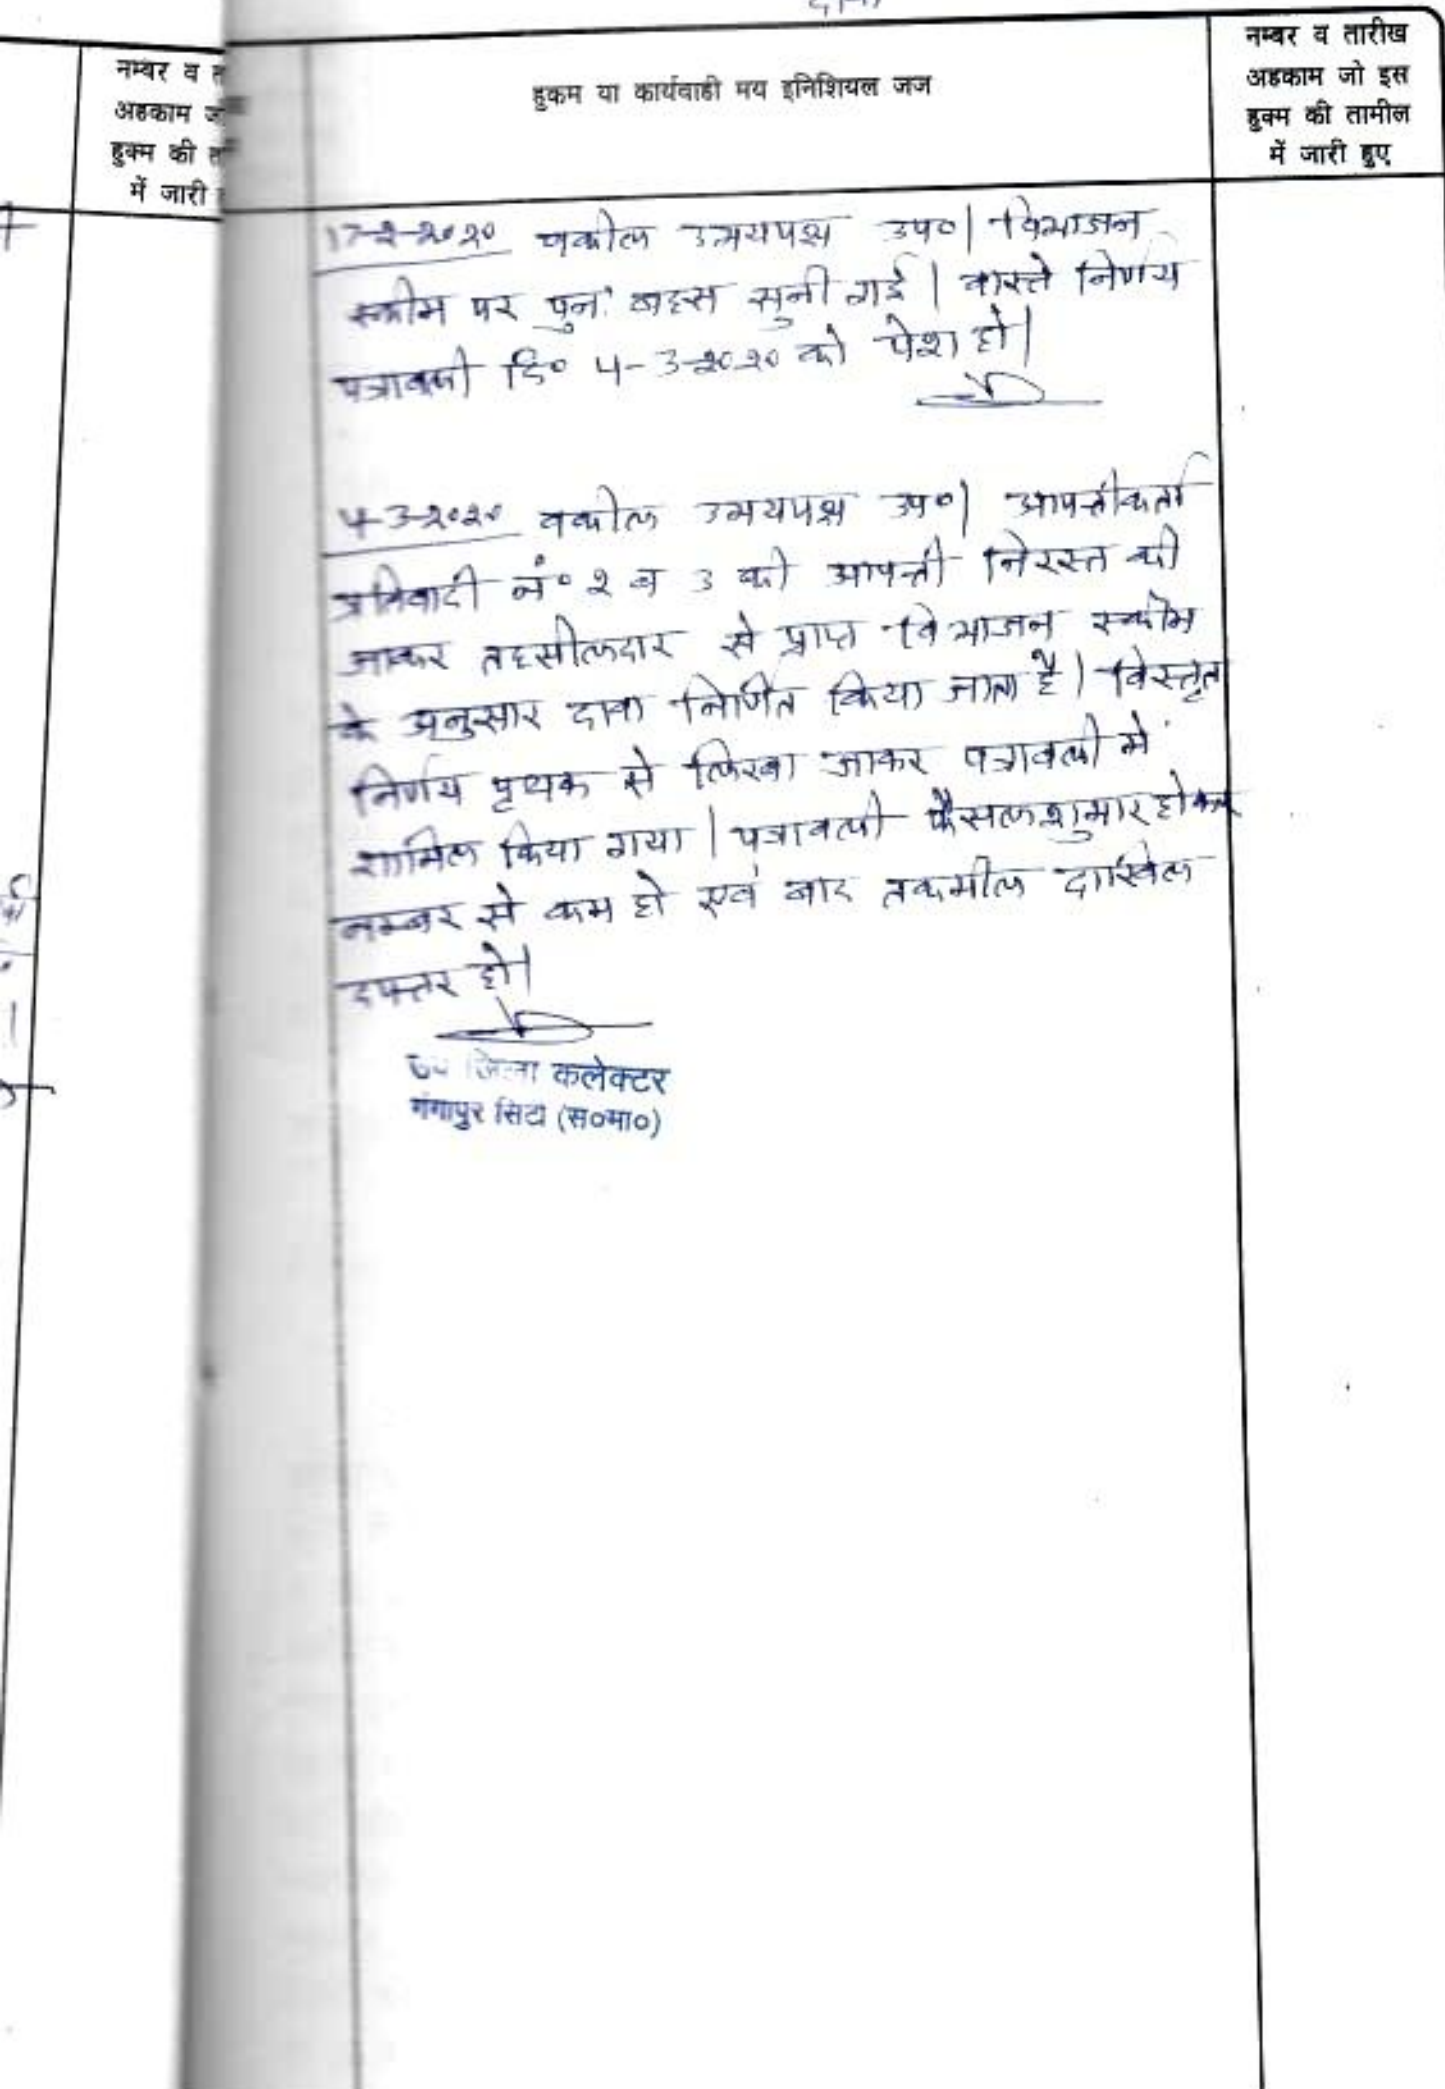 नम्बर व
अहकाम
हुक्म की
में जारी
हुकम या कार्यवाही मय इनिशियल जज
नम्बर व तारीख
अहकाम जो इस
हुक्म की तामील
में जारी हुए
17-2-2020 वकील उभयपक्ष उप०। विभाजन
स्कीम पर पुनः बहस सुनी गई। वास्ते निर्णय
पत्रावली दि० 4-3-2020 को पेश हो।
4-3-2020 वकील उभयपक्ष उप०। आपत्तीकर्ता
प्रतिवादी नं० 2 व 3 की आपत्ती निरस्त की
जाकर तहसीलदार से प्राप्त विभाजन स्कीम
के अनुसार दावा निर्णित किया जाता है। विस्तृत
निर्णय पृथक से लिखा जाकर पत्रावली में
शामिल किया गया। पत्रावली फैसल शुमार होकर
नम्बर से कम हो एवं बाद तकमील दाखिल
दफ्तर हो।
उप जिला कलेक्टर
गंगापुर सिटी (स०मा०)